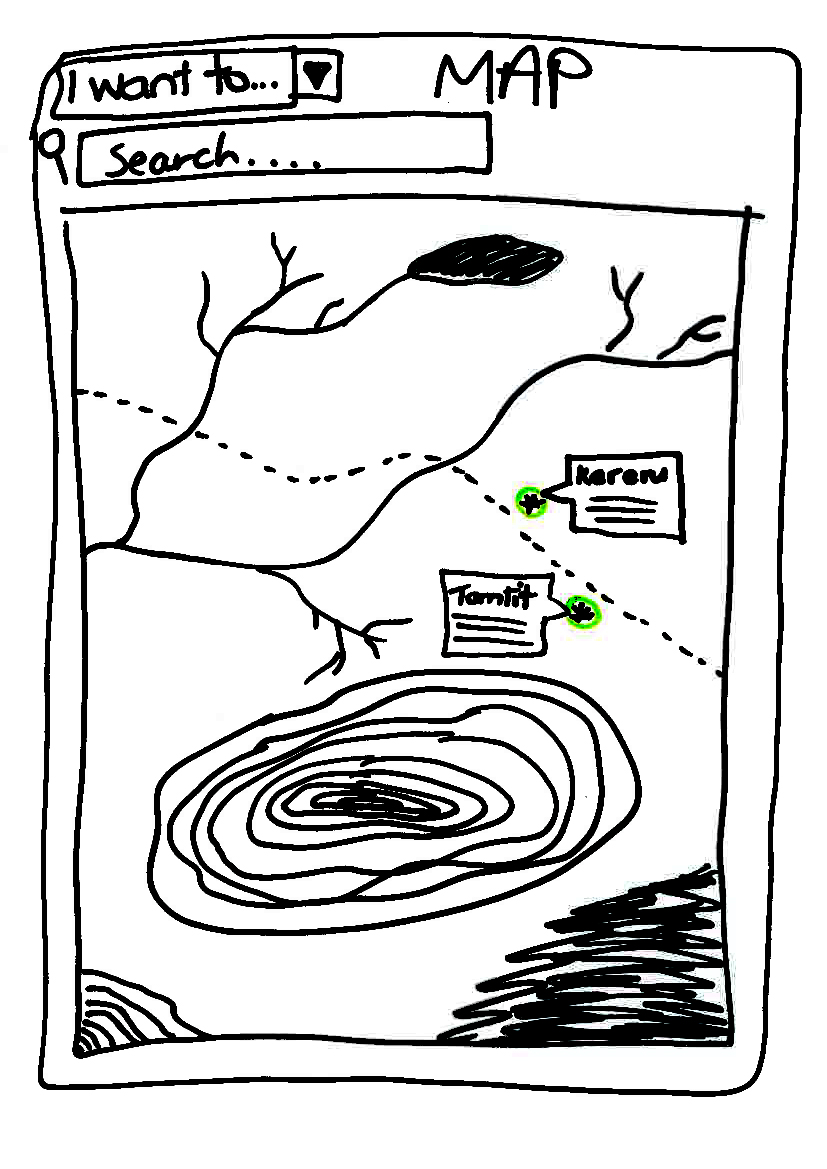 I want to...
MAP
Search....
Kareru
Tamtit